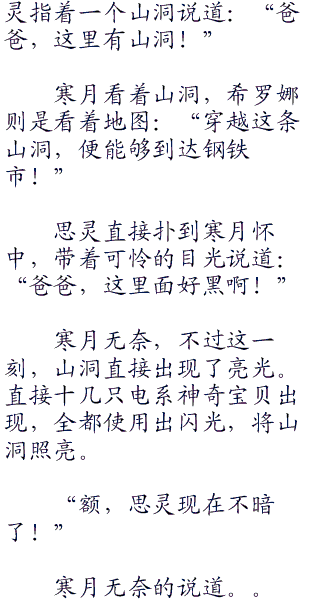 灵指着一个山洞说道：“爸
爸，这里有山洞！”
寒月看着山洞，希罗娜
则是看着地图：“穿越这条
山洞，便能够到达钢铁
市！”
思灵直接扑到寒月怀
中，带着可怜的目光说道：
“爸爸，这里面好黑啊！”
寒月无奈，不过这一
刻，山洞直接出现了亮光。
直接十几只电系神奇宝贝出
现，全都使用出闪光，将山
洞照亮。
“额，思灵现在不暗
了！”
寒月无奈的说道。。